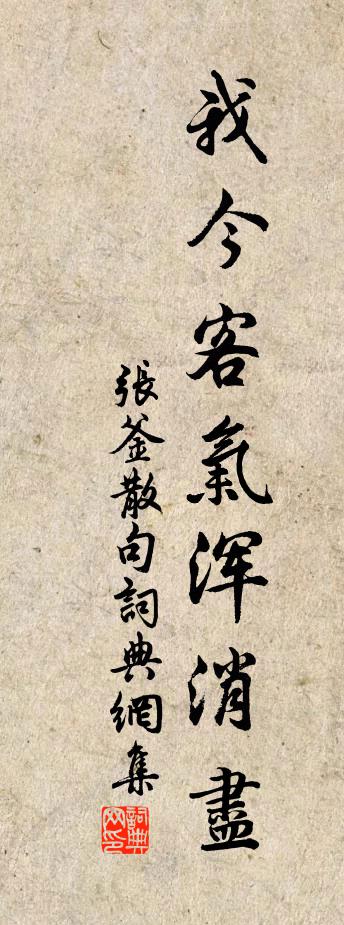 我今客氣浑消盡
張釜散句詞典網集
詞典网印